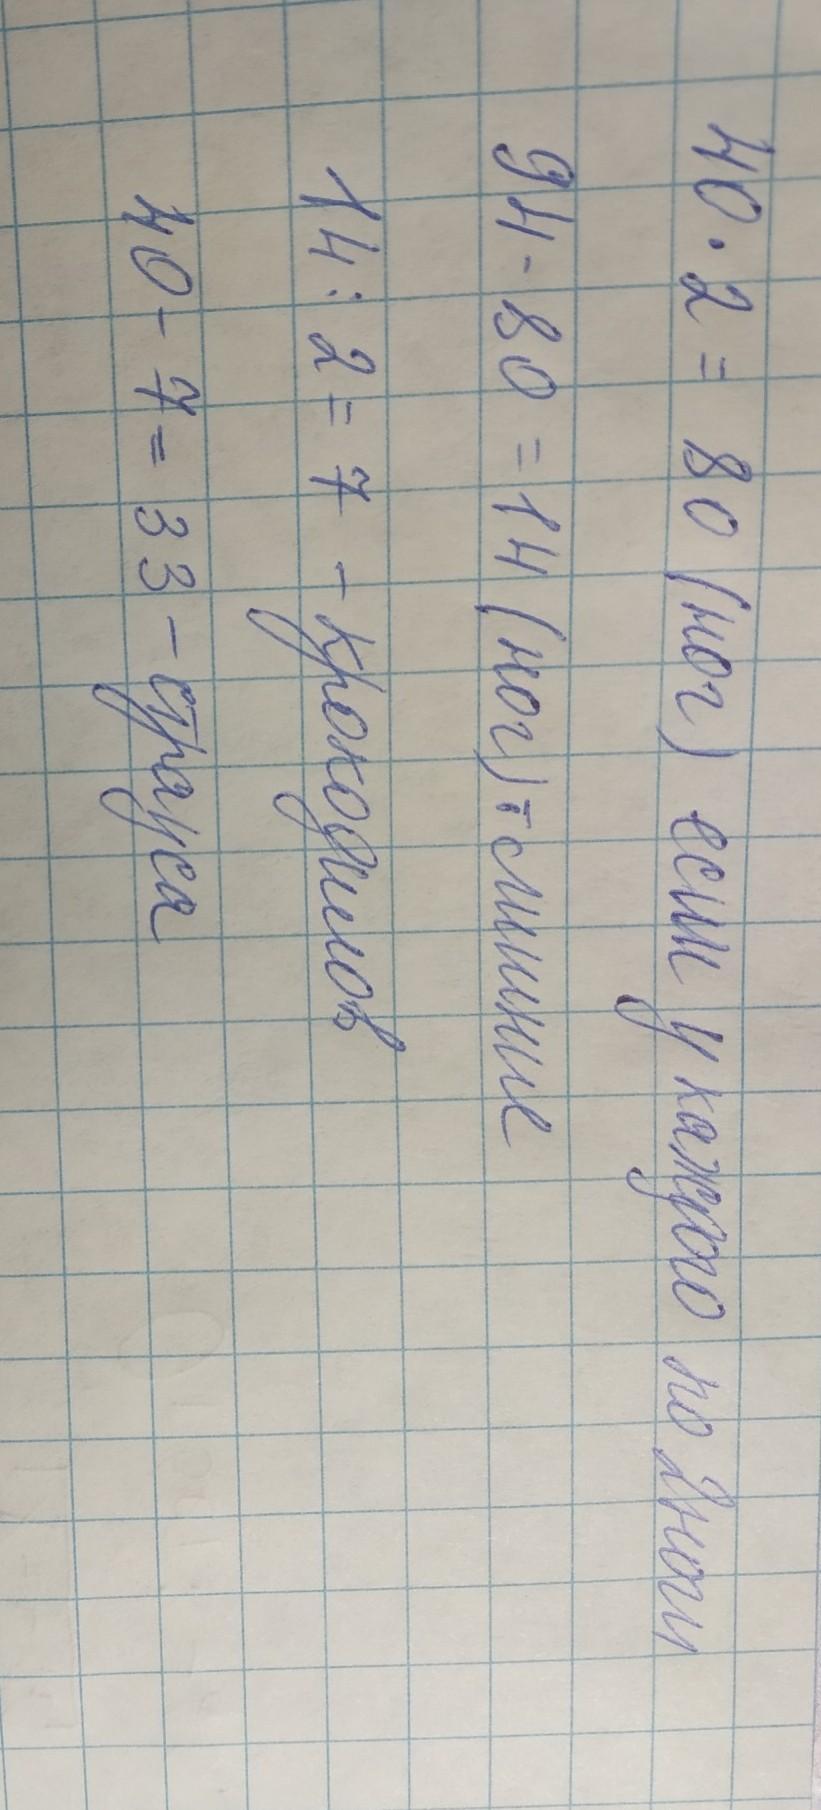 40 · 2 = 80 (ног) если у каждого по 2 ноги
94 - 80 = 14 (ног) - лишние
14 : 2 = 7 - крокодилов
40 - 7 = 33 - страуса